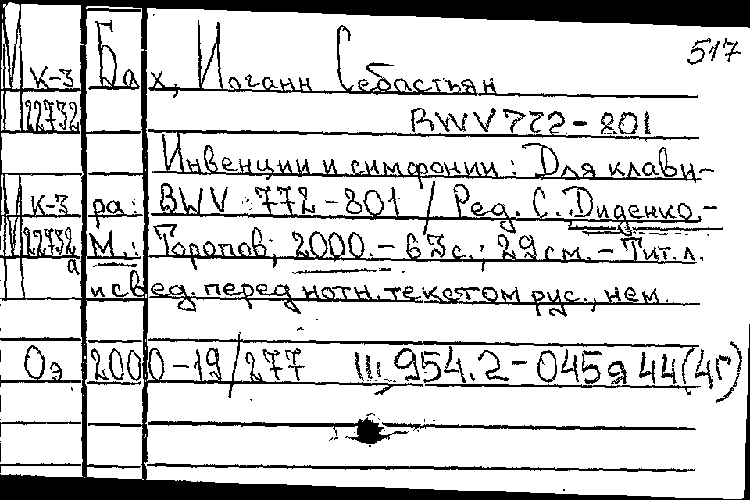 517
М К-3 Бах, Иоганн Себастьян
22732 BWV 772-801
Инвенции и симфонии: Для клави-
М К-3 ра: BWV 772-801 / Ред. С. Диденко.-
22732 М.: Торопов, 2000.- 63с.; 29см. - Тит. л.
а и свед. перед нотн. текстом рус., нем.
Оэ 2000-19/277 Ш, 954.2-045я44(4Г)